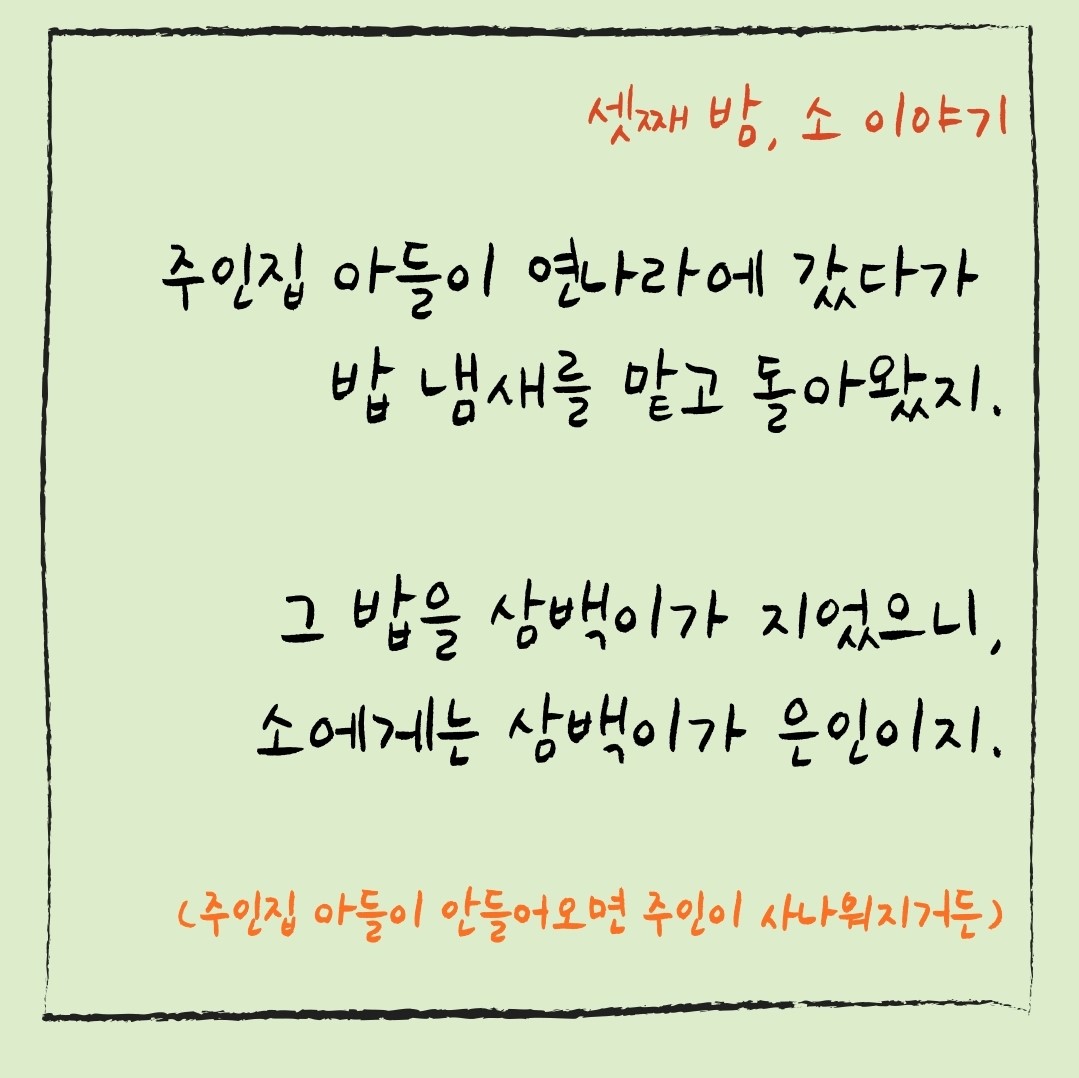 셋째 밤, 소 이야기
주인집 아들이 연나라에 갔다가
밥 냄새를 맡고 돌아왔지.
그 밥을 삼백이가 지었으니,
소에게는 삼백이가 은인이지.
(주인집 아들이 안들어오면 주인이 사나워지거든)